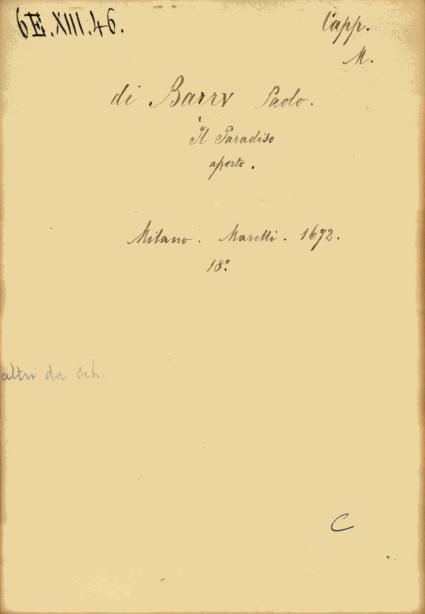 6E.XIII.46.
Capp.
M.
di Barry Paolo.
Il Paradiso
aperto.
Milano. Marelli. 1672.
18°
altri da Sch.
C